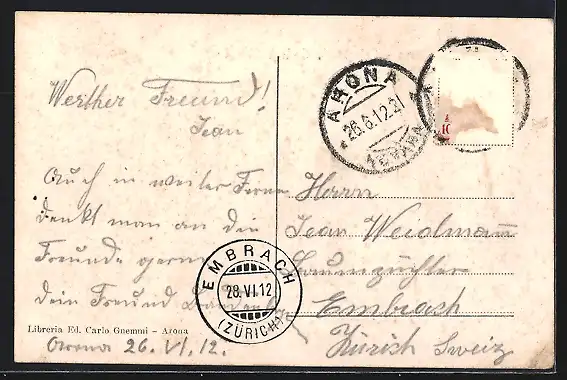 Werther Freund!
Jean
Auch in weiter Ferne
denkt man an die
Freunde gerne
Dein Freund
Libreria Ed. Carlo Guemmi - Arona
Arona 26. VI. 12.
ARONA
26.6.12.21
NOVARA
EMBRACH
28.VI.12
(ZÜRICH)
Herrn
Jean Weidmann
Embrach
Zürich Sweiz